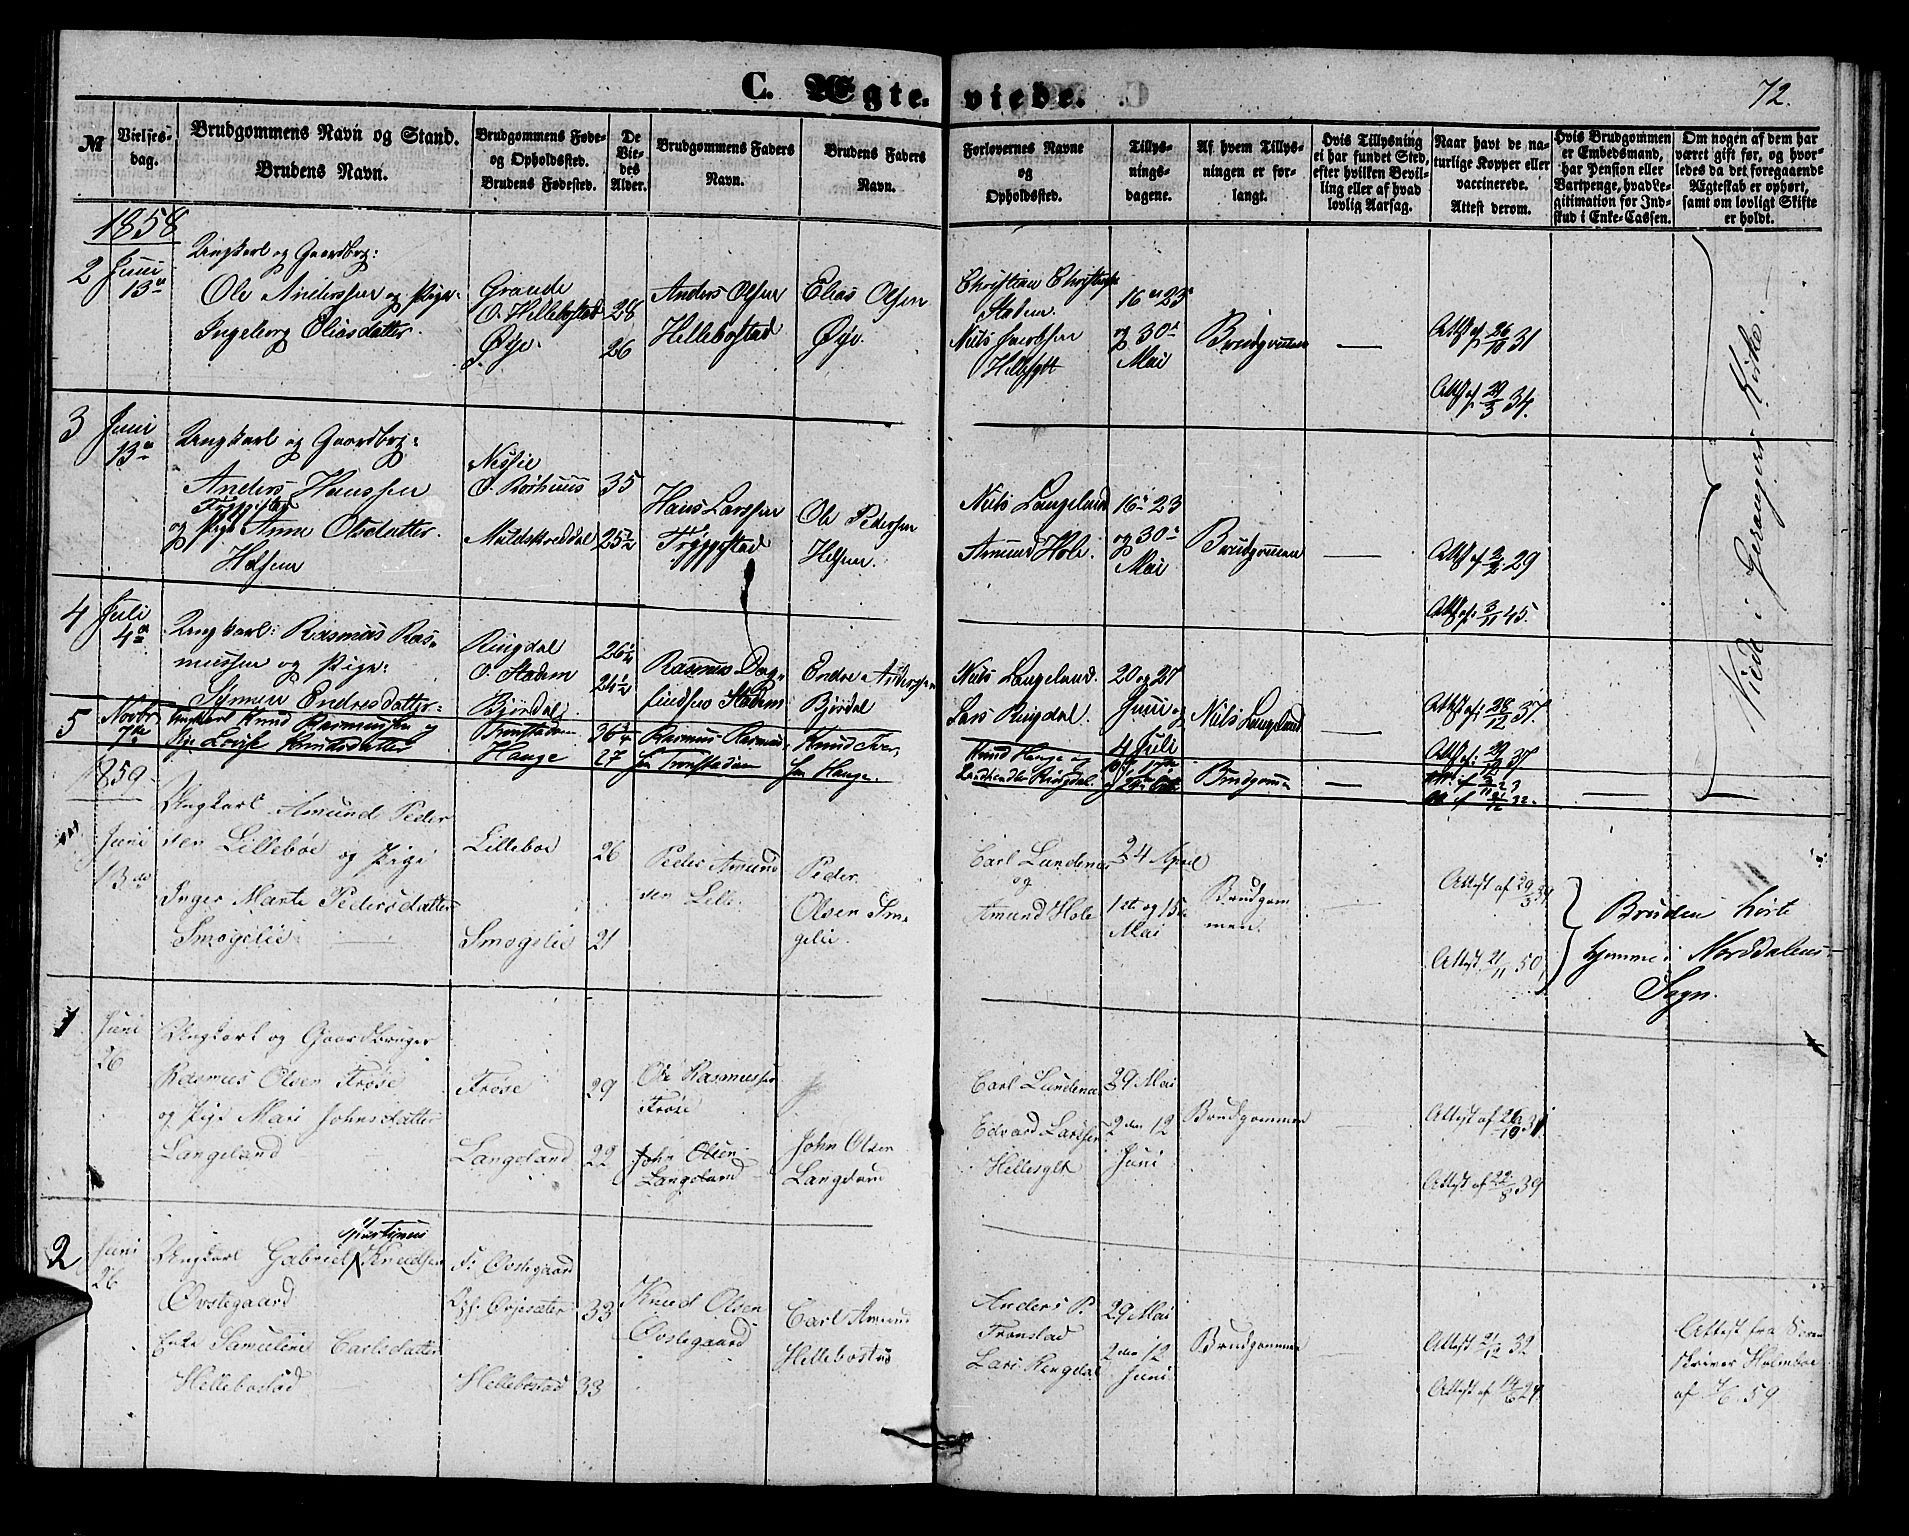 C. Ægte- viede.
72.
№
Vielses-
dag.
Brudgommens Navn og Stand.
Brudens Navn.
Brudgommens Føde-
og Opholdssted.
Brudens Fødested.
De
Vie-
des
Alder.
Brudgommens Faders
Navn.
Brudens Faders
Navn.
Forlovernes Navne
og
Opholdssted.
Tillys-
nings-
dagene.
Af hvem Tillys-
ningen er for-
langt.
Hvis Tillysning
ei har fundet Sted,
efter hvilken Bevil-
ling eller af hvad
lovlig Aarsag.
Naar havt de na-
turlige Kopper eller
vaccinerede.
Attest derom.
Hvis Brudgommen
er Embedsmand,
har Pension eller
Vartpenge, hvad Le-
gitimation for Ind-
skud i Enke-Cassen.
Om nogen af dem har
været gift før, og hvor-
ledes da det foregaaende
Ægteskab er ophørt,
samt om lovligt Skifte
er holdt.
1858
2
Juni
13
Ungkarl og Gaardbrg:
Ole Anderssen og Pige
Ingeborg Eliasdatter.
Grande
O. Hellebostad
Øye
28
26
Anders Olsen
Hellebostad
Elias Olsen
Øye.
Christian
Stadem
Niels Jacobsen
Hellesylt
16 23
og 30
Mai
Brudgommen
Att. af 26/10 31
Att. af 29/3 34.
3
Juni
13
Ungkarl og Gaardbrg:
Anders Hanssen
Tryggestad
og Pige Anne Olsdatter.
O.
35
25½
Hans Larssen
Tryggestad
Ole Pedersen
Niels Langeland
Amund Hole.
16 23
og 30
Mai
Brudgommen
Att. af 29
Att. af 3/11 45.
Viede i Geranger Kirke.
4
Juli
4
Ungkarl: Rasmus Ras-
mussen og Pige:
Synnev Endresdatter
Ringdal
O. Stadem
Bjørdal
26¼
24½
Rasmus Dag-
findsen Stadem
Endre Anderssen
Bjørdal
Niels Langeland.
Lars Ringdal.
20 og 27
Juni og
4 Juli
Niels Langeland
Att. af 28/12 37.
Att. af 37
5
Novbr
7de
Ungkarl Knud Rasmussen og
Pige Lovise Knudsdatter
Tronstaden
Hauge
36¾
27
Rasmus Rasmus-
sen Tronstaden
Knud Iver-
sen Hauge.
Knud Hauge og
Ringdal.
Brudgomm-
1859.
Juni
13de
Ungkarl Amund Peder
sen Lillebøe og Pige
Inger Marte Pedersdatter
Smogelie
Lillebøe
Smogelie
26
21
Peder Amund
sen Lille.
Peder
Olsen Smo
gelie.
Carl Lundenæs
og
Amund Hole
24 April
1ste og 15de
Mai
Brudgom
men.
Attest af 29/3 34
Attest 21/11 50
Bruden hørte
hjemme i Norddalens
Sogn.
1
Juni
26
Ungkarl og Gaardbruger
Rasmus Olsen Frøse
og Pige Mari Johnsdatter
Langeland
Frøse
Langeland
29
22
Ole Rasmussen
Frøse
John Olsen
Langeland
John Olsen
Langeland
Carl Lundenæs
Edvard Larssen
Hellesylt
29 Mai
2den 12
Juni
Brudgommen
Attest af 26/10 31
Attest af 22/8 39
2
Juni
26
Ungkarl Gabriel Martinus Knudsen
Øvstegaard
Enke Samueline Carlsdatter
Hellebostad
F. Øvstegaard
Oph. Ørjesæter
Hellebostad
33
33
Knud Olsen
Øvstegaard
Carl Amund
Hellebostad
Anders P.
Tronstad
Lars Ringdal
29 Mai
2den 12
Juni
Brudgommen
Attest 21/12 32
Attest af 14/6 27
Attest fra Soren
skriver Holmboe
af 59